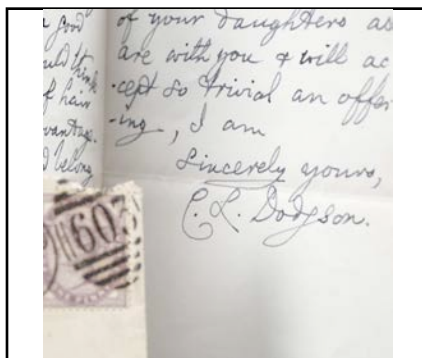 good
of your daughters as
are with you & will ac
-cept so trivial an offer
-ing, I am
Sincerely yours,
C. L. Dodgson.
think
of hair
vantage.
belong
603